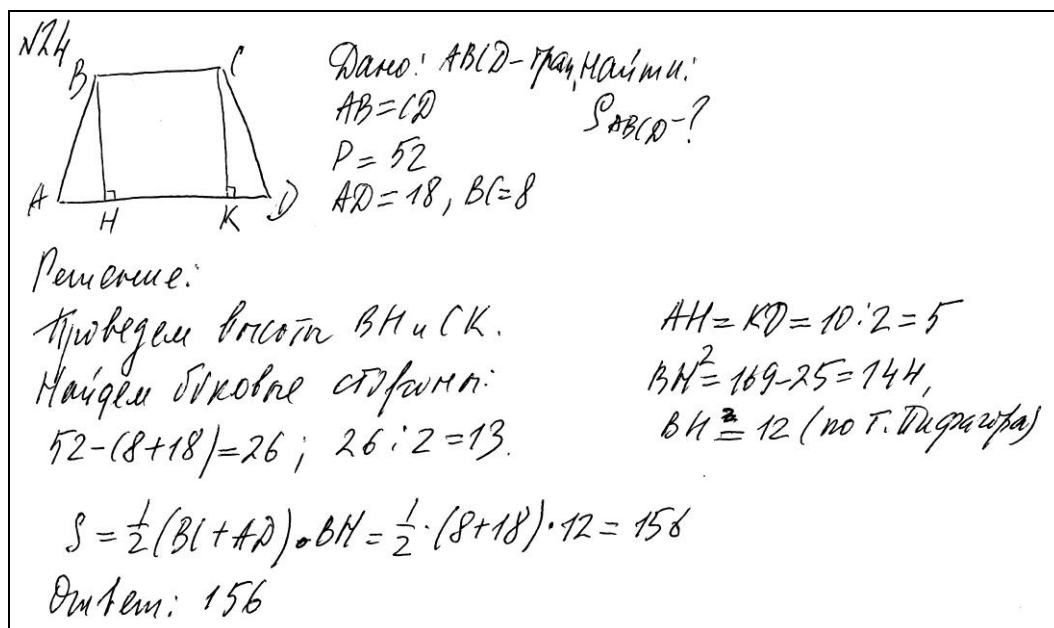 №24
B C
A H K D
Дано: ABCD-трап, Найти:
AB=CD SABCD-?
P=52
AD=18, BC=8
Решение:
Проведем высоты BH и CK.
Найдем боковые стороны:
52-(8+18)=26; 26:2=13.
AH=KD=10:2=5
BH²=169-25=144,
BH=12 (по т. Пифагора)
S=1/2(BC+AD)·BH=1/2·(8+18)·12=156
Ответ: 156